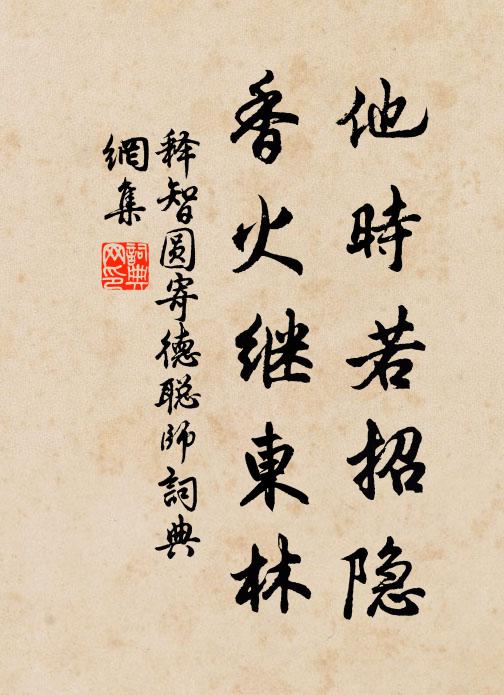 他時若招隐
香火继東林
释智圆寄德聪師詞典
網集
詞典
网印